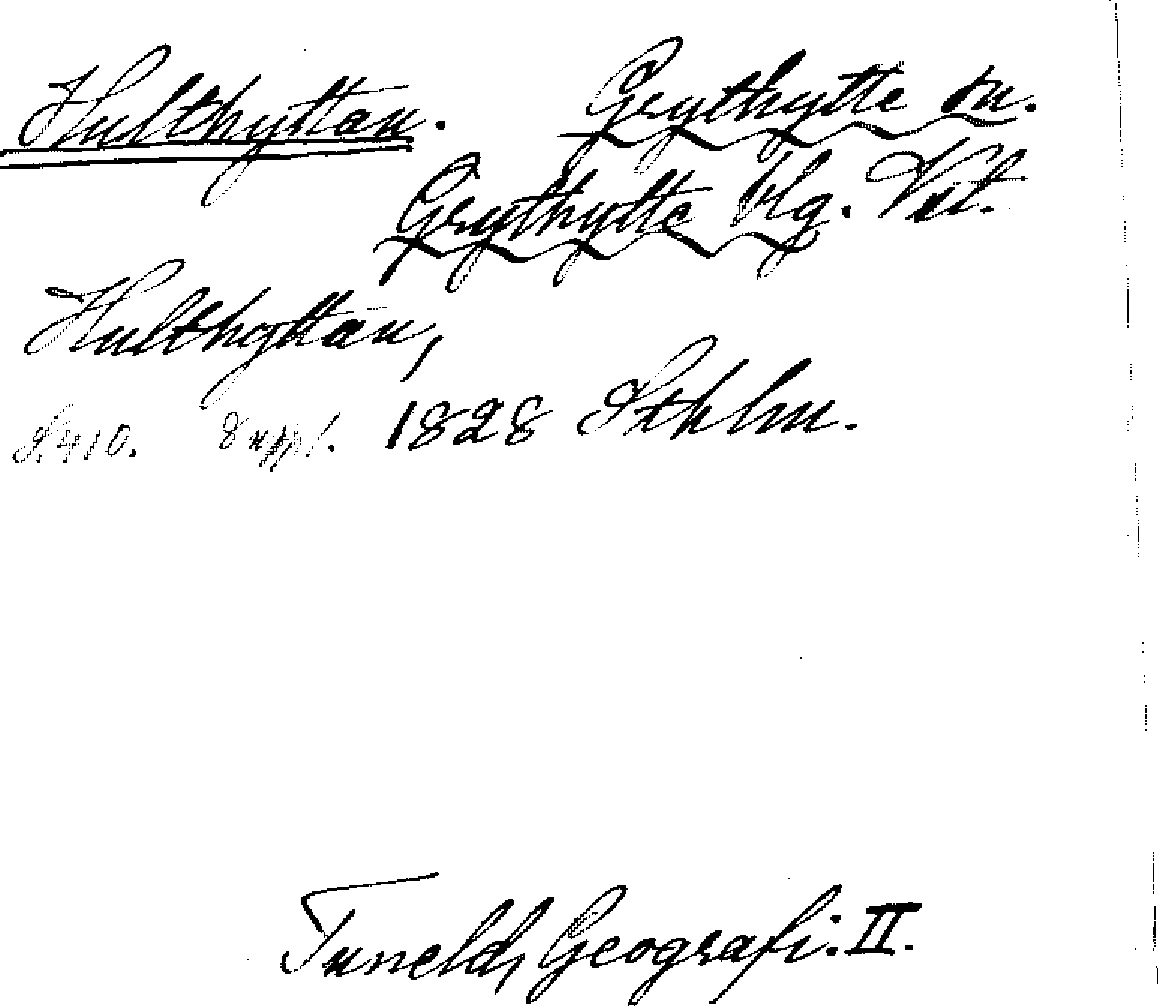 Hulthyttan. Grythytte sn.
Grythytte blg. Vstl.
Hulthyttan,
S. 410. 8 uppl. 1828 Sthlm.
Tuneld, Geografi. II.